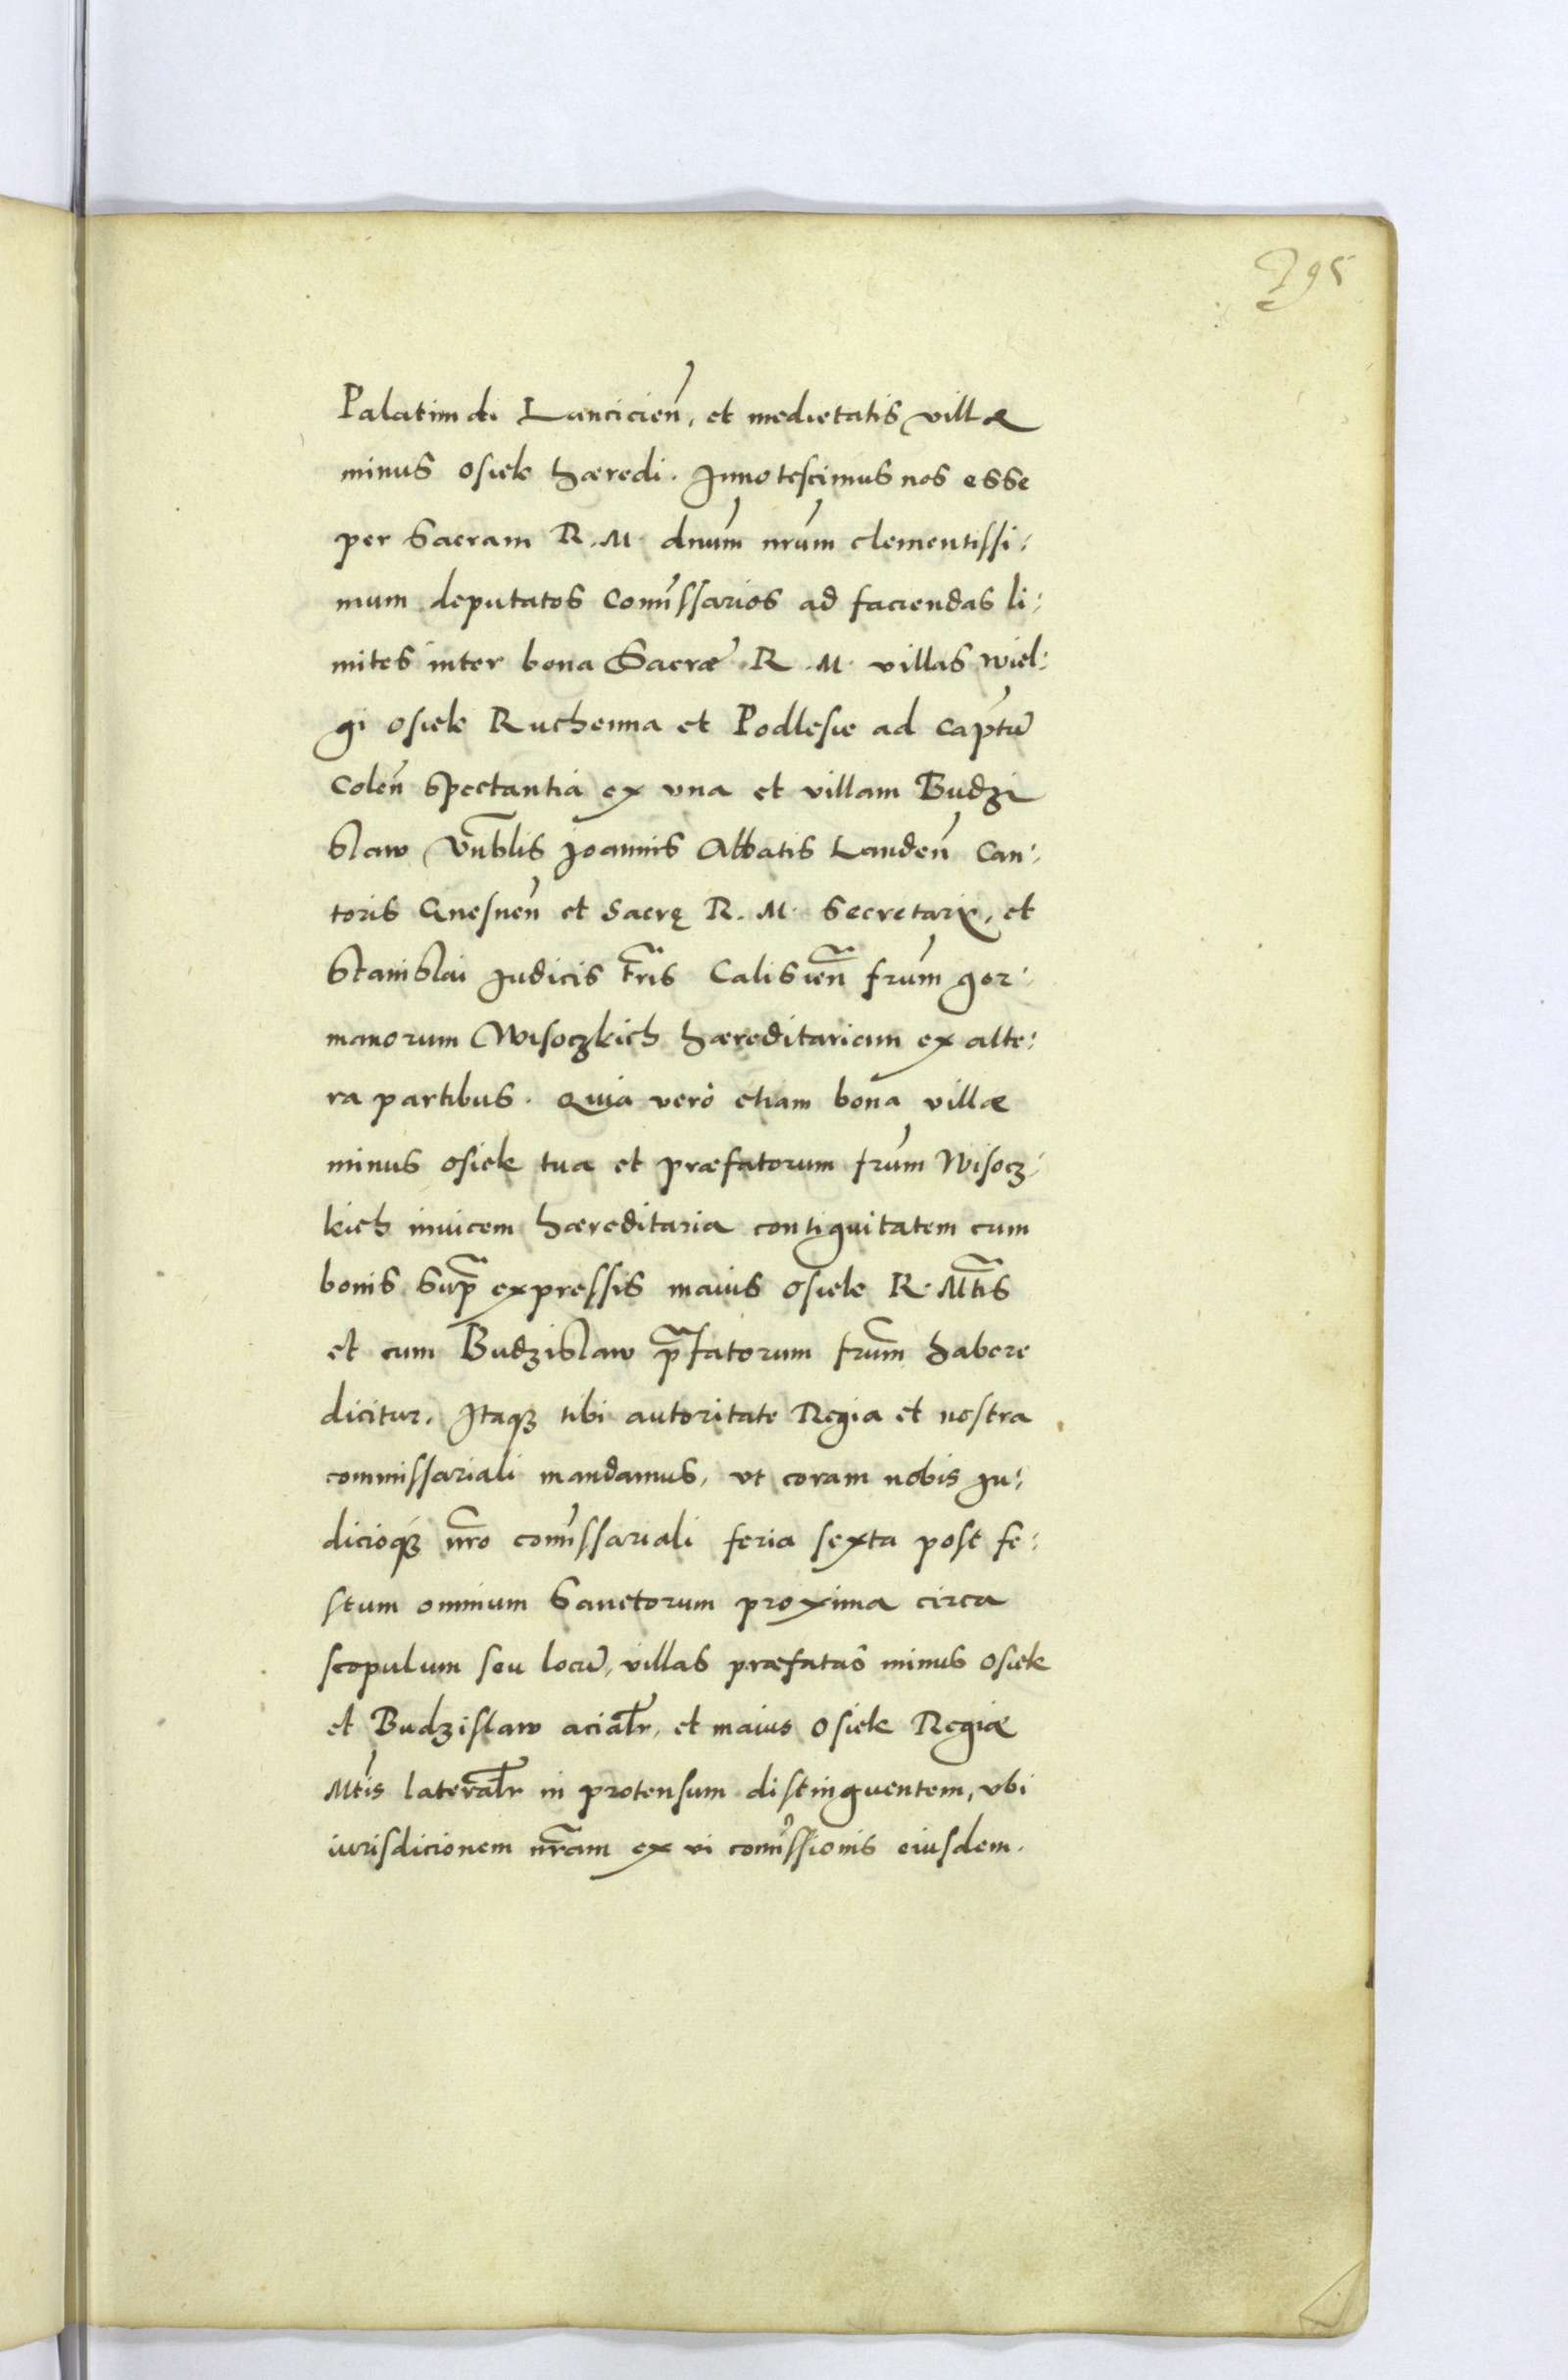 295
Palatini di Lancicień, et medietatis villæ
minus osiek hæredi. Innotescimus nos esse
per Sacram R. M. dnum nrum clementissi:
mum deputatos Comissarios ad faciendas li:
mites inter bona Sacræ R. M. villas wiel:
gi osiek Ruchenna et Podlesie ad Captũ
Coleń spectantia ex vna et villam Budzi
slaw Vnblis Joannis Abbatis Landeń Can:
toris Gnesneń et Sacrę R. M. Secretarij, et
Stanislai Judicis tris Calisień frum ger:
manorum Wisoczkich hæreditariam ex alte:
ra partibus. Quia verò etiam bona villæ
minus osiek tua et præfatorum frum Wisocz:
kich inuicem hæreditaria contiguitatem cum
bonis sup expressis maius osiek R. Mtis
et cum Budzislaw pfatorum frum habere
dicitur. Itaqz tibi autoritate Regia et nostra
commissariali mandamus, vt coram nobis Ju:
dicioqz nro comissariali feria sexta post fe:
stum omnium Sanctorum proxima circa
scopulum seu locũ, villas præfatas minus osiek
et Budzislaw acialr, et maius osiek Regiæ
Mtis lateralr in protensum distinguentem, vbi
iurisdicionem nram ex vi comissionis eiusdem.